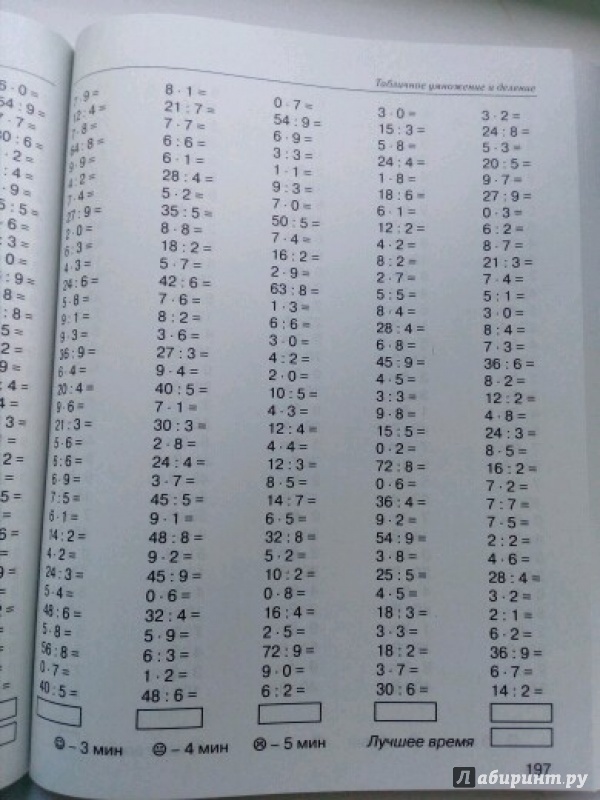 Табличное умножение и деление
7 · 9 =
12 : 4 =
7 · 8 =
64 : 8 =
9 · 9 =
4 : 2 =
7 · 4 =
27 : 9 =
2 · 0 =
6 : 3 =
4 · 3 =
24 : 6 =
5 · 8 =
9 : 1 =
9 · 3 =
36 : 9 =
6 · 4 =
20 : 4 =
9 · 6 =
21 : 3 =
5 · 6 =
6 : 6 =
6 · 9 =
7 : 5 =
6 · 1 =
14 : 2 =
4 · 2 =
24 : 3 =
5 · 4 =
48 : 6 =
5 · 8 =
56 : 8 =
0 · 7 =
40 : 5 =
8 · 1 =
21 : 7 =
7 · 7 =
6 : 6 =
6 · 1 =
28 : 4 =
5 · 2 =
35 : 5 =
8 · 8 =
18 : 2 =
5 · 7 =
42 : 6 =
7 · 6 =
8 : 2 =
3 · 6 =
27 : 3 =
9 · 4 =
40 : 5 =
7 · 1 =
30 : 3 =
2 · 8 =
24 : 4 =
3 · 7 =
45 : 5 =
9 · 1 =
48 : 8 =
9 · 2 =
45 : 9 =
0 · 6 =
32 : 4 =
5 · 9 =
6 : 3 =
1 · 2 =
48 : 6 =
0 · 7 =
54 : 9 =
6 · 9 =
3 : 3 =
1 · 1 =
9 : 3 =
7 · 0 =
50 : 5 =
7 · 4 =
16 : 2 =
2 · 9 =
63 : 8 =
1 · 3 =
6 : 6 =
3 · 0 =
4 : 2 =
2 · 0 =
10 : 5 =
4 · 3 =
12 : 4 =
4 · 4 =
12 : 3 =
8 · 5 =
14 : 7 =
6 · 5 =
32 : 8 =
5 · 2 =
10 : 2 =
0 · 8 =
16 : 4 =
2 · 5 =
72 : 9 =
9 · 0 =
6 : 2 =
3 · 0 =
15 : 3 =
5 · 8 =
24 : 4 =
1 · 8 =
18 : 6 =
6 · 1 =
12 : 2 =
4 · 2 =
8 : 2 =
2 · 7 =
5 : 5 =
8 · 4 =
28 : 4 =
6 · 8 =
45 : 9 =
4 · 5 =
3 : 3 =
9 · 8 =
15 : 5 =
0 · 2 =
72 : 8 =
0 · 6 =
36 : 4 =
9 · 2 =
54 : 9 =
3 · 8 =
25 : 5 =
4 · 5 =
18 : 3 =
3 · 3 =
18 : 2 =
3 · 7 =
30 : 6 =
3 · 2 =
24 : 8 =
5 · 3 =
20 : 5 =
9 · 7 =
27 : 9 =
0 · 3 =
6 : 2 =
8 · 7 =
21 : 3 =
7 · 4 =
5 : 1 =
3 · 0 =
8 : 4 =
7 · 3 =
36 : 6 =
8 · 2 =
12 : 2 =
4 · 8 =
24 : 3 =
8 · 5 =
16 : 2 =
7 · 2 =
7 : 7 =
7 · 5 =
2 : 2 =
4 · 6 =
28 : 4 =
3 · 2 =
2 : 1 =
6 · 2 =
36 : 9 =
6 · 7 =
14 : 2 =
– 3 мин – 4 мин – 5 мин Лучшее время
197
Лабиринт.ру